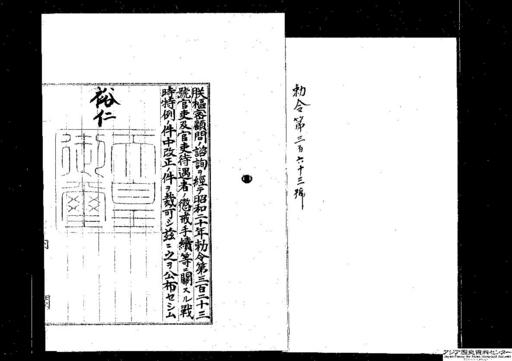 勅令第三百六十三號
朕樞密顧問ノ諮詢ヲ經テ昭和二十年勅令第三百二十三
號官吏及官吏待遇者ノ懲戒手續等ニ關スル戰
時特例ノ件中改正ノ件ヲ裁可シ玆ニ之ヲ公布セシム
裕仁
天皇
御璽
アジア歴史資料センター